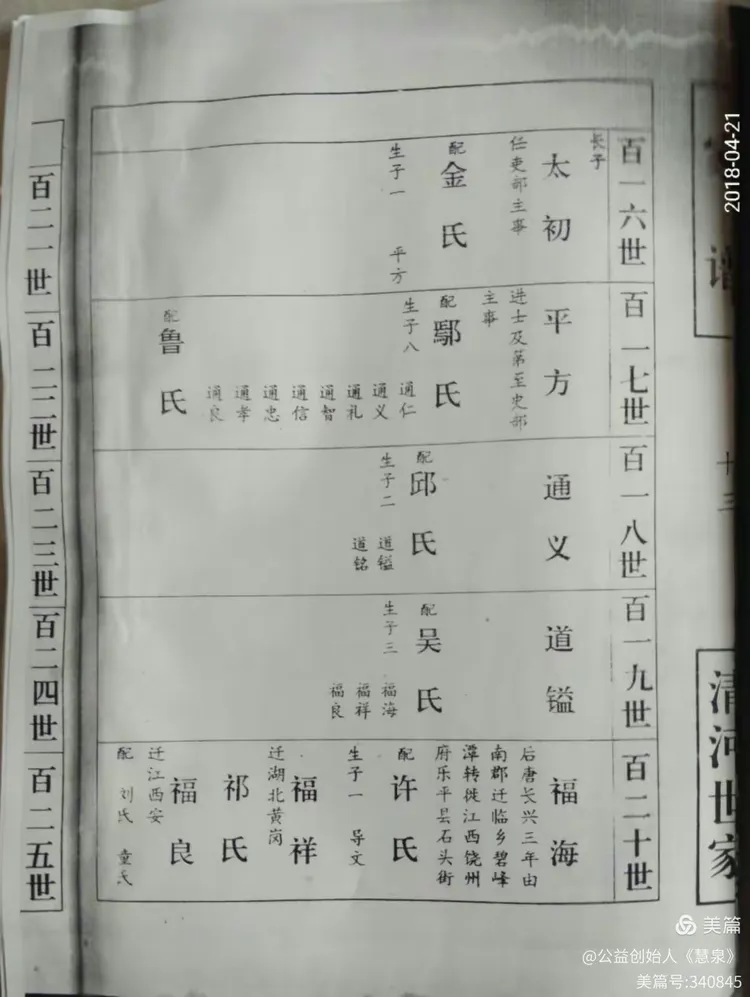 2018-04-21
谱
十三
清河世家
百一六世
长子
太初
任吏部主事
配
金氏
生子一 平方
百一七世
平方
进士及第至吏部
主事
配
鄢氏
生子八
通仁
通义
通礼
通智
通信
通忠
通孝
通良
配
鲁氏
百一八世
通义
配
邱氏
生子二
道镒
道铭
百一九世
道镒
配
吴氏
生子三
福海
福祥
福良
百二十世
福海
后唐长兴三年由
南郡迁临乡碧峰
潭转徙江西饶州
府乐平县石头街
配
许氏
生子一 导文
福祥
迁湖北黄岗
祁氏
福良
迁江西安
配 刘氏 童氏
百二一世
百二二世
百二三世
百二四世
百二五世
美篇
@公益创始人《慧泉》
美篇号:340845